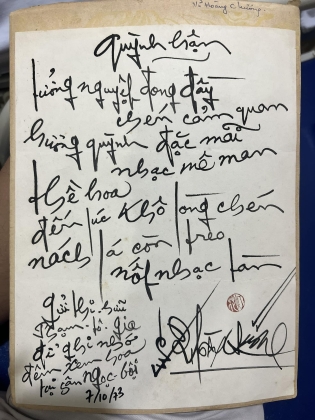 Vũ Hoàng Chương
quỳnh hận
tưởng nguyệt đong đầy
chén cản quan
hường quỳnh đặc mãi
nhạc mê man
thề hoa
đến lúc khô lòng chén
nách lá còn treo
nốt nhạc tàn
gửi thi hữu
Phạm
để ghi nhớ
đêm xem hoa
tại sân Ngọc-bội
7/10/73